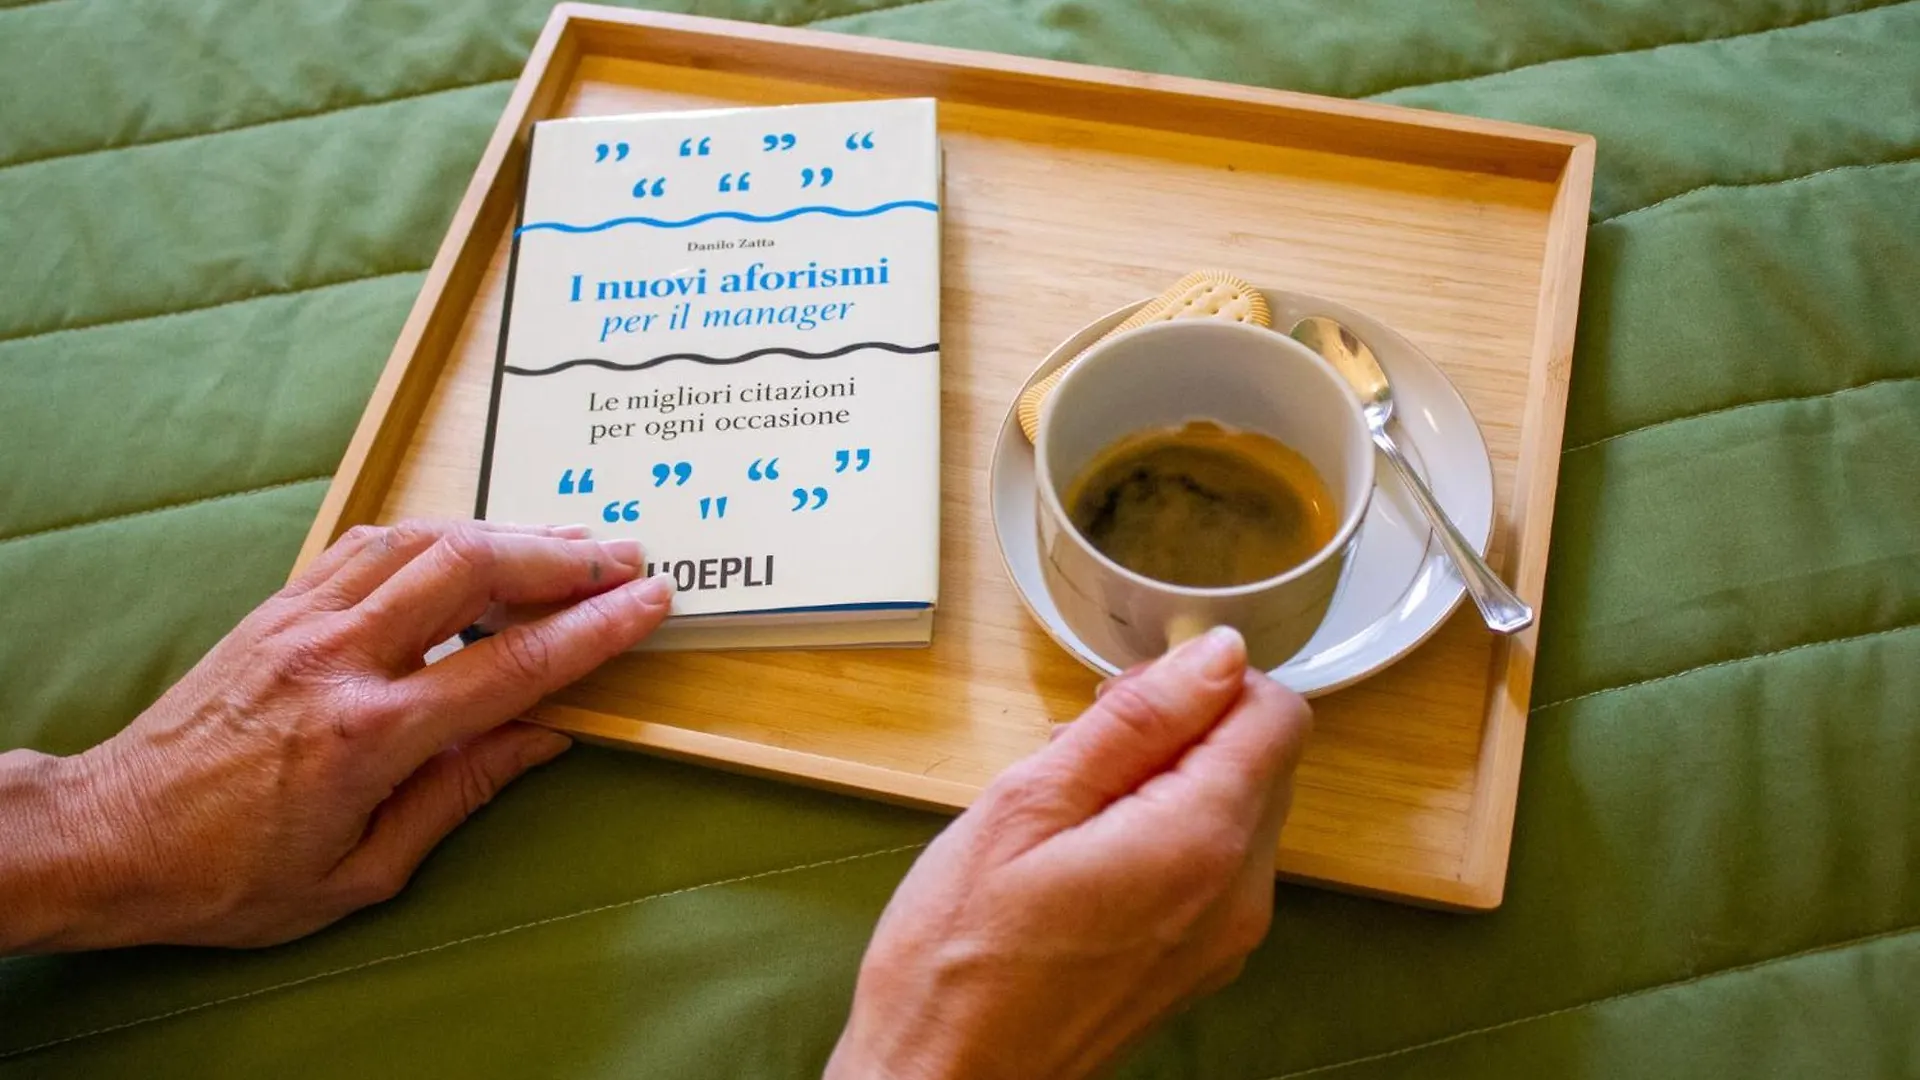 Danilo Zatta
I nuovi aforismi
per il manager
Le migliori citazioni
per ogni occasione
HOEPLI